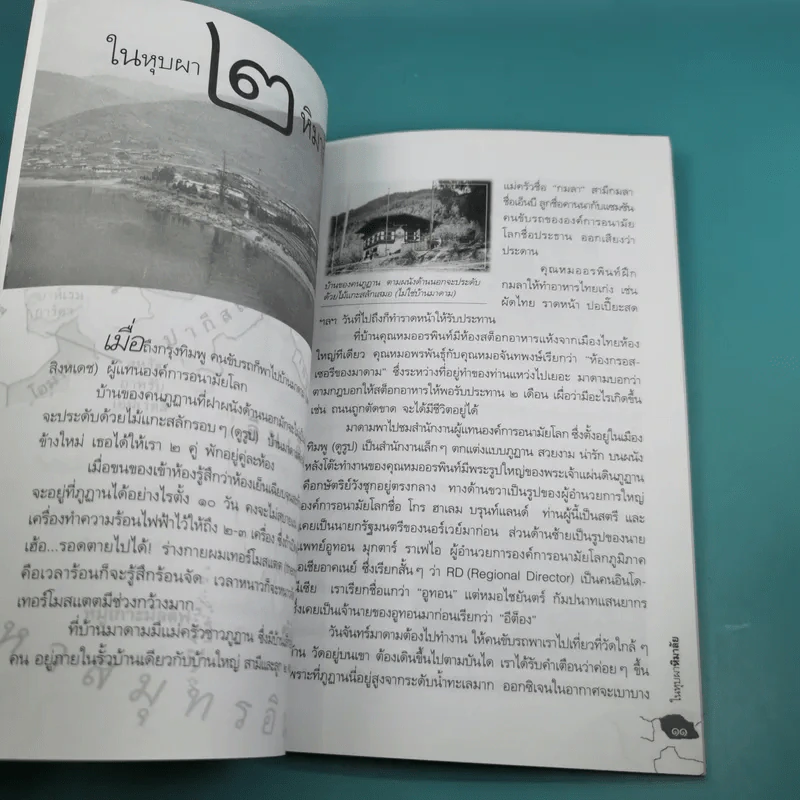 ในหุบผา
๒
หิมา
เมื่อถึงกรุงทิมพู คนขับรถก็พาไปบ้านมาดาม
สิงหเตช) ผู้แทนองค์การอนามัยโลก
บ้านของคนภูฏานที่ฝาผนังด้านนอกมักจะ
จะประดับด้วยไม้แกะสลักรอบๆ (ดูรูป)
ข้างใหม่ เธอได้ให้เรา ๒ คู่ พักอยู่คู่ละห้อง
เมื่อขนของเข้าห้องรู้สึกว่าห้องเย็นเฉียบ
จะอยู่ที่ภูฏานได้อย่างไรตั้ง ๑๐ วัน คงจะไม่
เครื่องทำความร้อนไฟฟ้าไว้ให้ถึง ๒-๓ เครื่อง
เฮ้อ...รอดตายไปได้! ร่างกายผมเทอร์โมสแตต
คือเวลาร้อนก็จะรู้สึกร้อนจัด เวลาหนาวก็จะหนาว
เทอร์โมสแตตมีช่วงกว้างมาก
ที่บ้านมาดามมีแม่ครัวชาวภูฏาน ซึ่งมีบ้าน
คน อยู่ภายในรั้วบ้านเดียวกับบ้านใหญ่ สามีและลูก
แม่ครัวชื่อ "กมลา" สามีกมลา
ชื่อเอ็นบี ลูกชื่อคานนากับแซมซัน
คนขับรถขององค์การอนามัย
โลกชื่อประธาน ออกเสียงว่า
ประดาน
คุณหมออรพินท์ฝึก
กมลาให้ทำอาหารไทยเก่ง เช่น
ผัดไทย ราดหน้า ปอเปี๊ยะสด
บ้านของคนภูฏาน ตามผนังด้านนอกจะประดับ
ด้วยไม้แกะสลักเสมอ (ไม่ใช่บ้านมาดาม)
ฯลฯ วันที่ไปถึงก็ทำราดหน้าให้รับประทาน
ที่บ้านคุณหมออรพินท์มีห้องสต็อกอาหารแห้งจากเมืองไทยห้อง
ใหญ่ทีเดียว คุณหมอพรพันธุ์กับคุณหมอจันทพงษ์เรียกว่า "ห้องกรอส-
เซอรีของมาดาม" ซึ่งระหว่างที่อยู่ทำของท่านแหว่งไปเยอะ มาดามบอกว่า
ตามกฎบอกให้สต็อกอาหารให้พอรับประทาน ๒ เดือน เผื่อว่ามีอะไรเกิดขึ้น
เช่น ถนนถูกตัดขาด จะได้มีชีวิตอยู่ได้
มาดามพาไปชมสำนักงานผู้แทนองค์การอนามัยโลก ซึ่งตั้งอยู่ในเมือง
ทิมพู (ดูรูป) เป็นสำนักงานเล็กๆ ตกแต่งแบบภูฏาน สวยงาม น่ารัก บนผนัง
หลังโต๊ะทำงานของคุณหมออรพินท์มีพระรูปใหญ่ของพระเจ้าแผ่นดินภูฏาน
คือกษัตริย์วังชุกอยู่ตรงกลาง ทางด้านขวาเป็นรูปของผู้อำนวยการใหญ่
องค์การอนามัยโลกชื่อ โกร ฮาเลม บรุนท์แลนด์ ท่านผู้นี้เป็นสตรี และ
เคยเป็นนายกรัฐมนตรีของนอร์เวย์มาก่อน ส่วนด้านซ้ายเป็นรูปของนาย
แพทย์อูทอน มุกตาร์ ราเฟไอ ผู้อำนวยการองค์การอนามัยโลกภูมิภาค
เอเชียอาคเนย์ ซึ่งเรียกสั้นๆ ว่า RD (Regional Director) เป็นคนอินโด-
นีเซีย เราเรียกชื่อแกว่า "อูทอน" แต่หมอไชยันตร์ กัมปนาทแสนยากร
ซึ่งเคยเป็นเจ้านายของอูทอนมาก่อนเรียกว่า "อีต๊อง"
วันจันทร์มาดามต้องไปทำงาน ให้คนขับรถพาเราไปเที่ยวที่วัดใกล้ๆ
บ้าน วัดอยู่บนเขา ต้องเดินขึ้นไปตามบันได เราได้รับคำเตือนว่าค่อยๆ ขึ้น
เพราะที่ภูฏานนี่อยู่สูงจากระดับน้ำทะเลมาก ออกซิเจนในอากาศจะเบาบาง
ในหุบผาหิมาลัย
๑๑